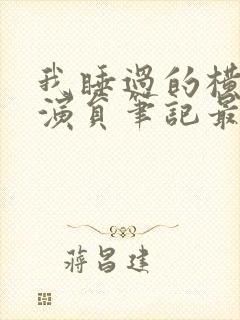 我睡過的橫
演員筆記最
蔣昌建